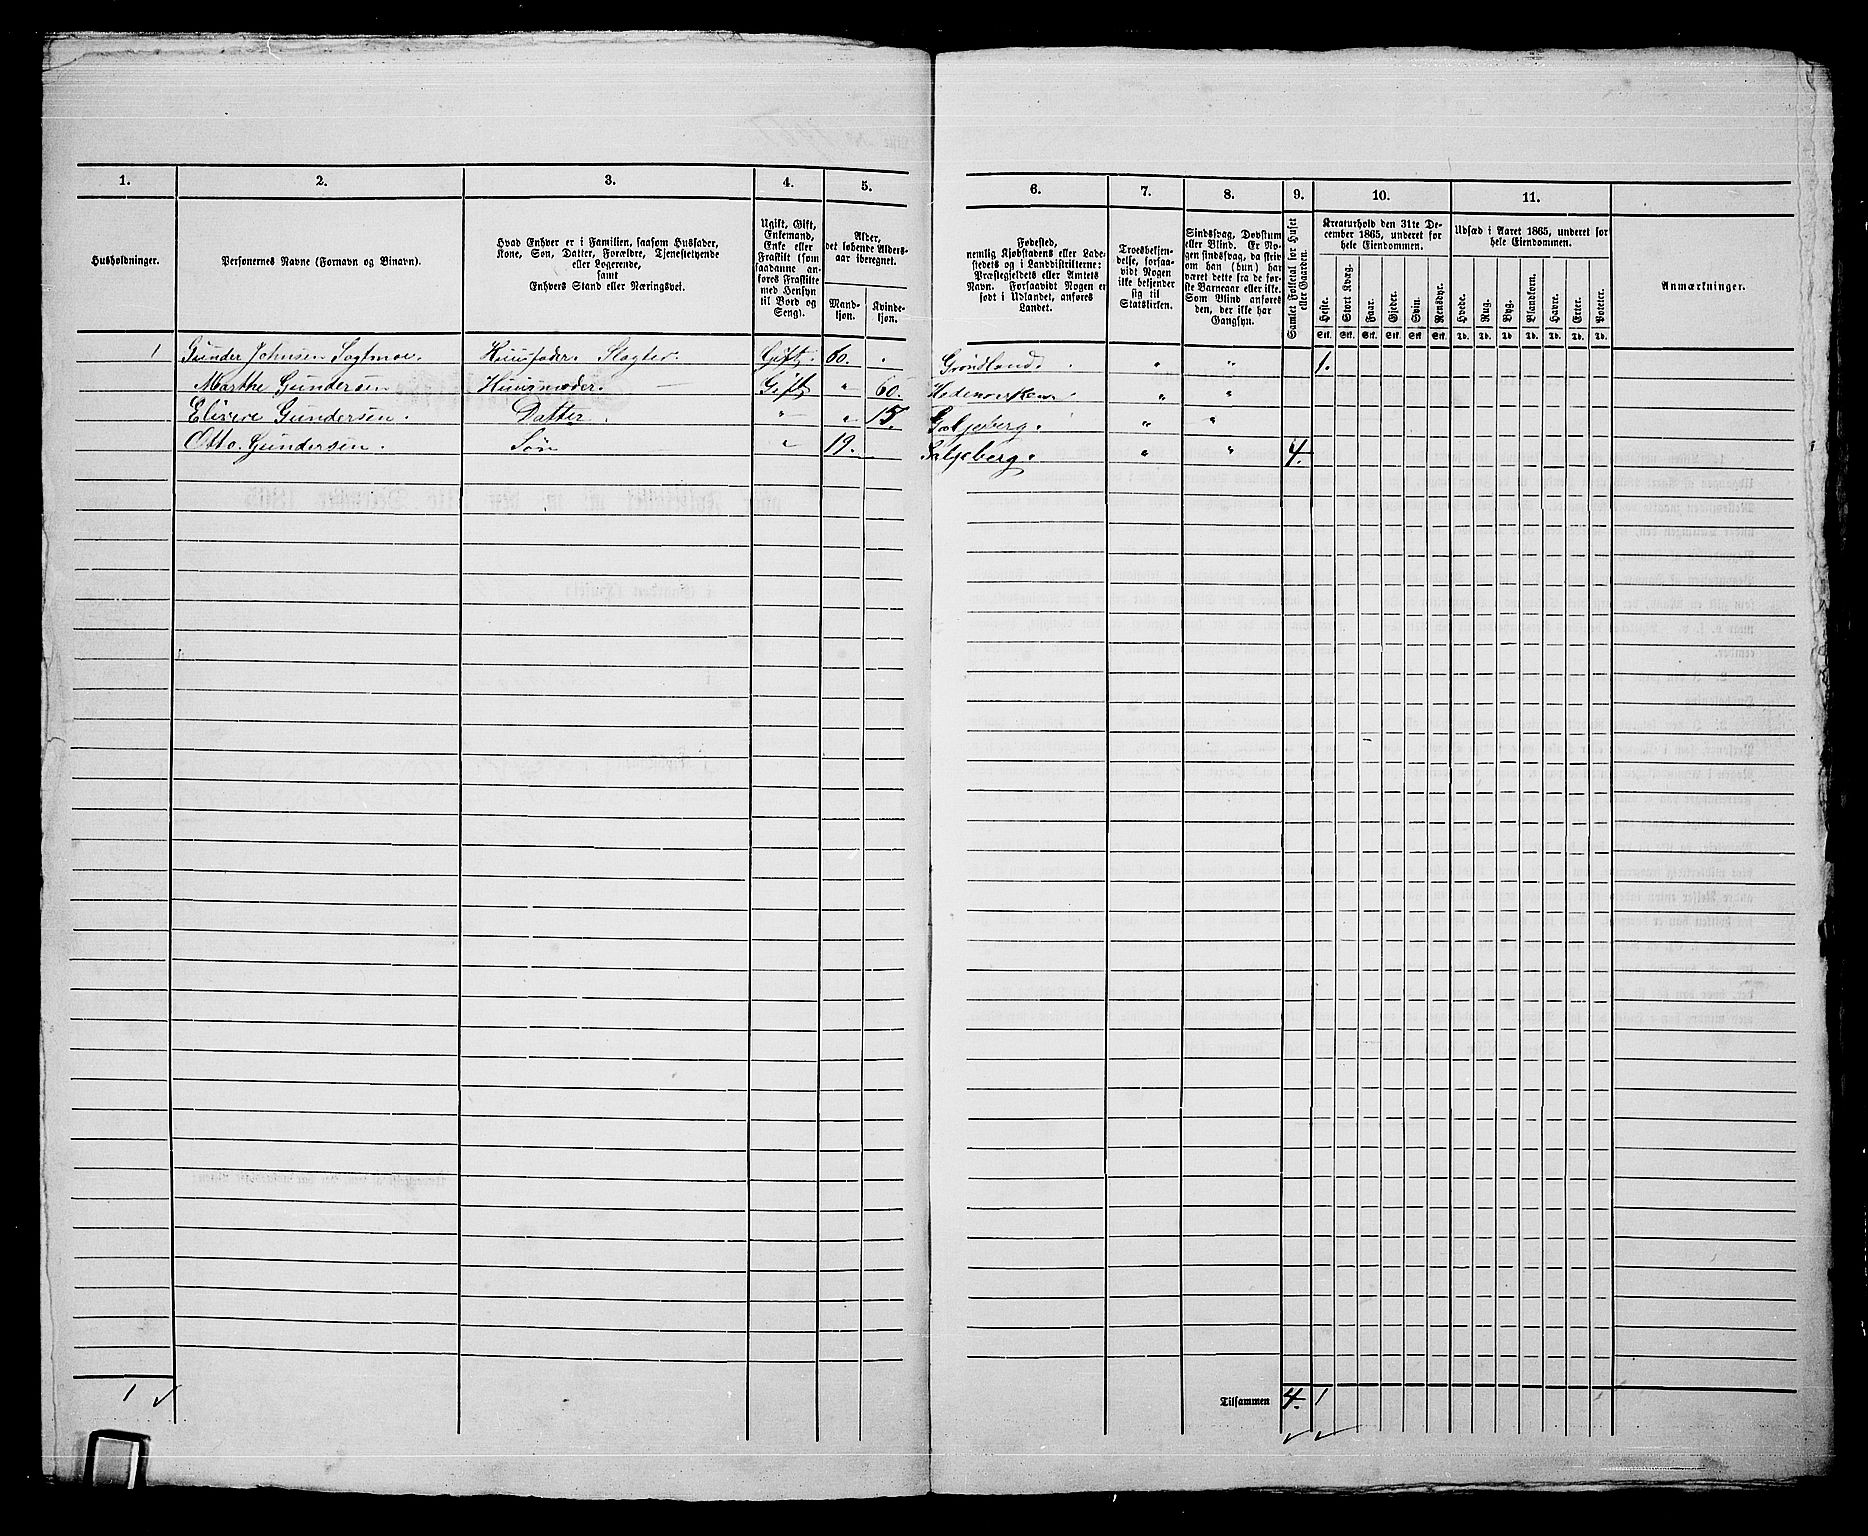 1. 2. 3. 4. 5. 6. 7. 8. 9. 10. 11.
Husholdninger.
Personernes Navne (Fornavn og Binavn).
Hvad Enhver er i Familien, saasom Husfader,
Kone, Søn, Datter, Forældre, Tjenestetyende
eller Logerende,
samt
Enhvers Stand eller Næringsvei.
Ugift, Gift,
Enkemand,
Enke eller
Fraskilt (som
saadanne an-
føres Fraskilte
med Hensyn
til Bord og
Seng).
Alder,
det løbende Alders-
aar iberegnet.
Mand-
kjøn.
Kvinde-
kjøn.
Fødested,
nemlig Kjøbstadens eller Lade-
stedets og i Landdistrikterne:
Præstegjeldets eller Amtets
Navn. Forsaavidt Nogen er
født i Udlandet, anføres
Landet.
Troesbekjen-
delse, forsaa-
vidt Nogen
ikke bekjender
sig til
Statskirken.
Sindssvag, Døvstum
eller Blind. Er No-
gen sindssvag, da skriv
om han (hun) har
været dette fra de før-
ste Barneaar eller ikke.
Som Blind anføres
den, der ikke har
Gangsyn.
Samlet Folketal for Huset
eller Gaarden.
Kreaturhold den 31te De-
cember 1865, underet for
hele Eiendommen.
Heste. Stort Kvæg. Faar. Gjeder. Svin. Rensdyr.
Stk. Stk. Stk. Stk. Stk. Stk.
Udsæd i Aaret 1865, underet for
hele Eiendommen.
Hvede. Rug. Byg. Blandkorn. Havre. Erter. Poteter.
Td. Td. Td. Td. Td. Td. Td.
Anmærkninger.
1 Gunder Johnsen Huusfader. Slagter. Gift. 60. 1.
Marthe Gundersen Huusmoder. Gift " 60. " "
Gundersen. Datter. " " 15. " "
Otto Gundersen. Søn " 19. " " 4.
Tilsammen 4. 1
1